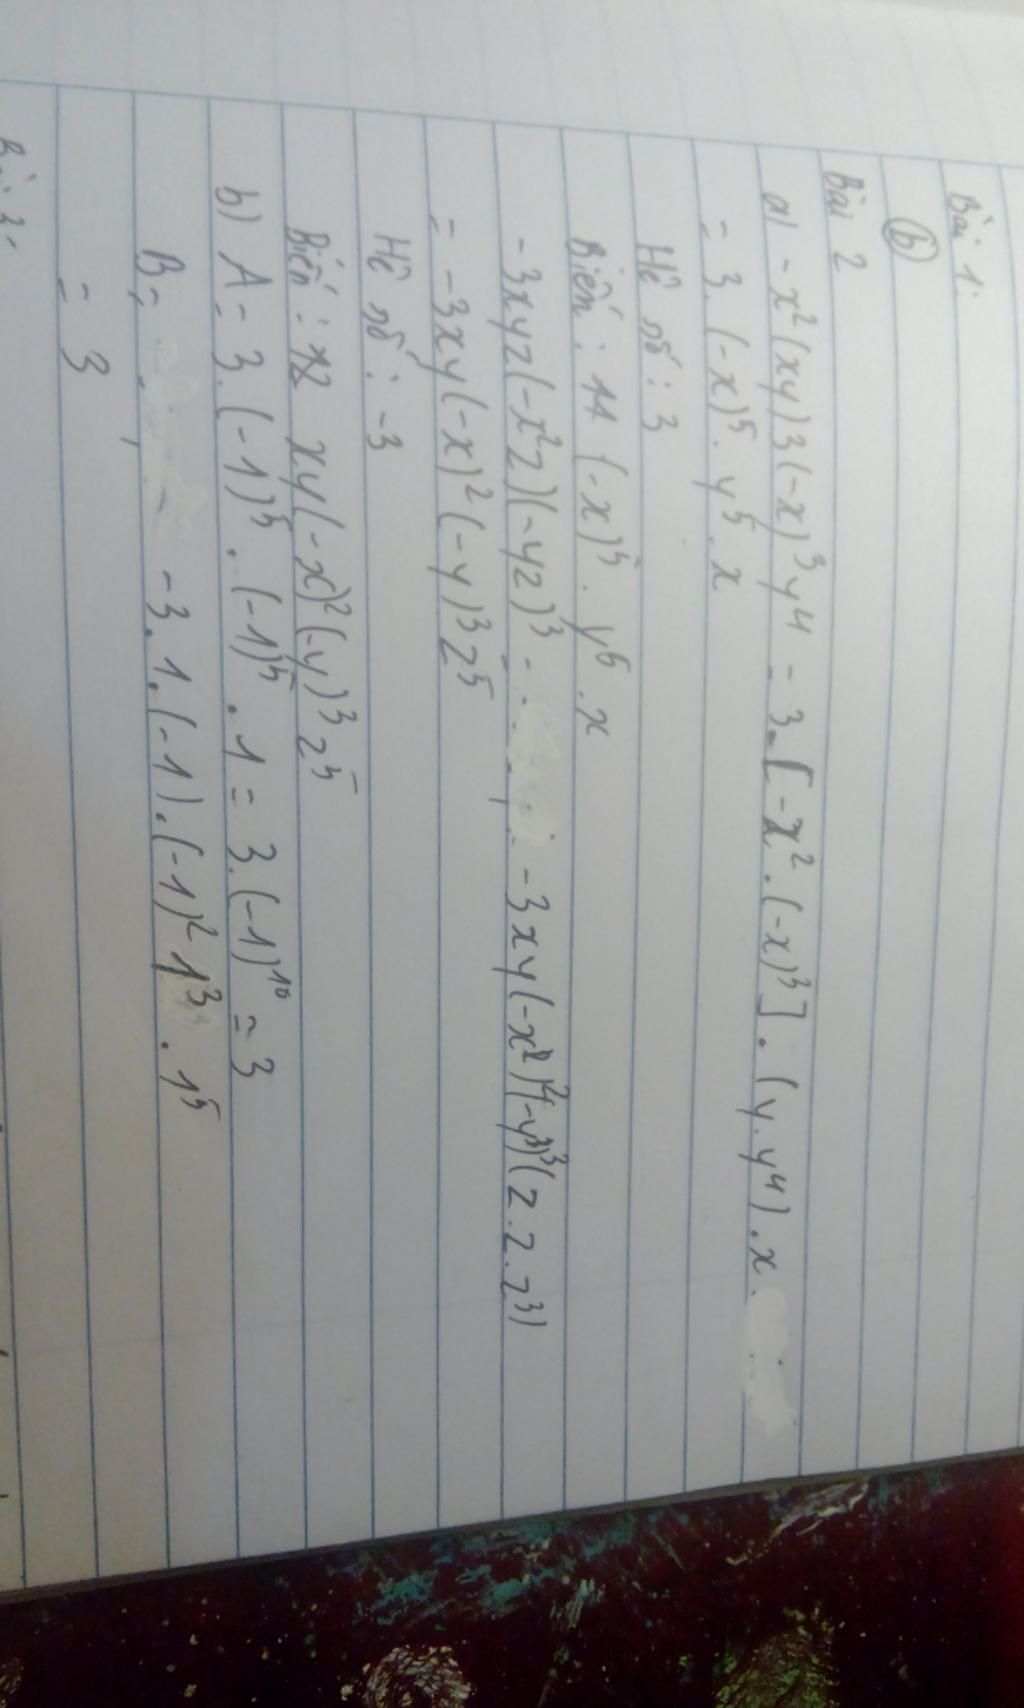 Bài 1:
(b)
Bài 2
a) - x²(xy)3(-x)³y⁴ = 3.[-x².(-x)³].(y.y⁴).x
= 3.(-x)⁵.y⁵.x
Hệ số: 3
Biến: 11 (-x)⁵.y⁵.x
- 3xyz(-x²z)(-yz)³ = -3xy(-x²)(-y³)³(z.z.z³)
= -3xy(-x)²(-y)³z⁵
Hệ số: -3
Biến: 12 xy(-x)²(-y)³z⁵
b) A = 3.(-1)⁵.(-1)⁵.1 = 3.(-1)¹⁰ = 3
B = -3.1.(-1).(-1)²1³.1⁵
= 3
Bài 3: